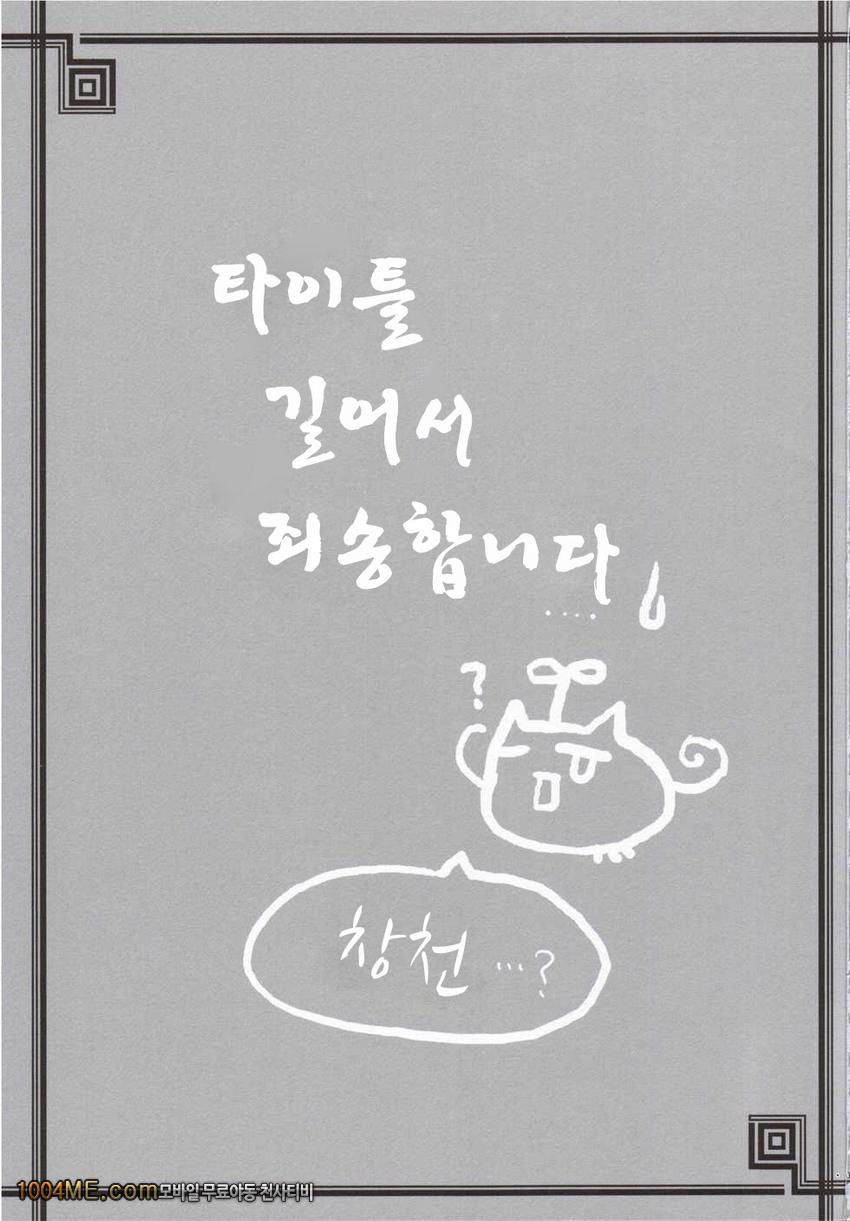 타이틀
길어서
죄송합니다
....
?
창천 …?
1004ME.com모바일 무료야동 천사티비